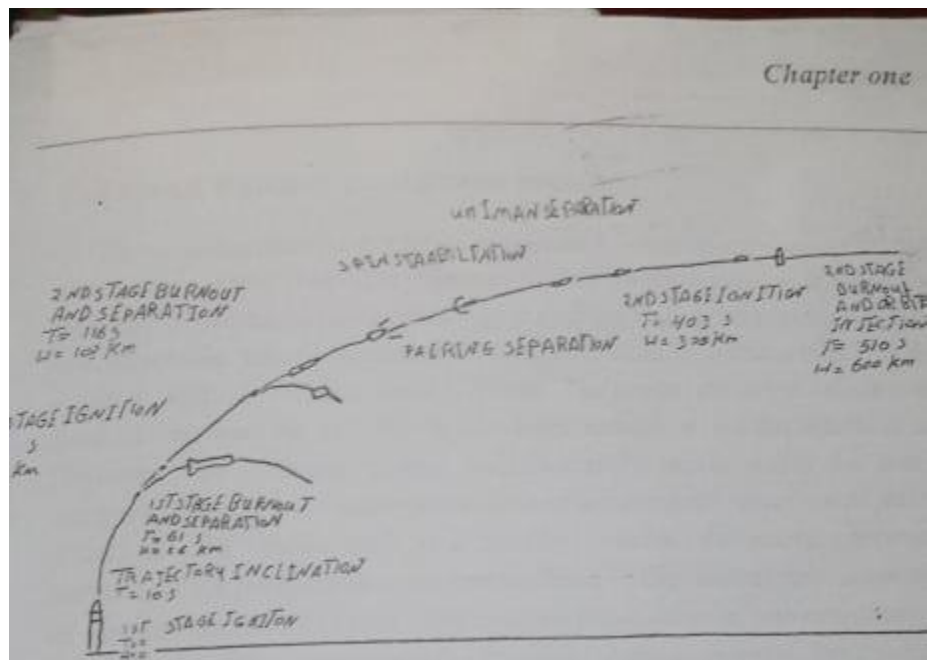 Chapter one
UMIMAN SEPARATION
SPIN STAABILTATION
2ND STAGE BURNOUT
AND SEPARATION
T= 116 S
H= 108 Km
2ND STAGE IGNITION
T= 403 S
FAERING SEPARATION
2ND STAGE
BURNOUT
AND ORBIT
INJECTION
T= 510 S
H= 600 Km
STAGE IGNITION
S
Km
1ST STAGE BURNOUT
AND SEPARATION
T= 61 S
Km
TRAJECTORY INCLINATION
T= 10 S
1ST STAGE IGNITION